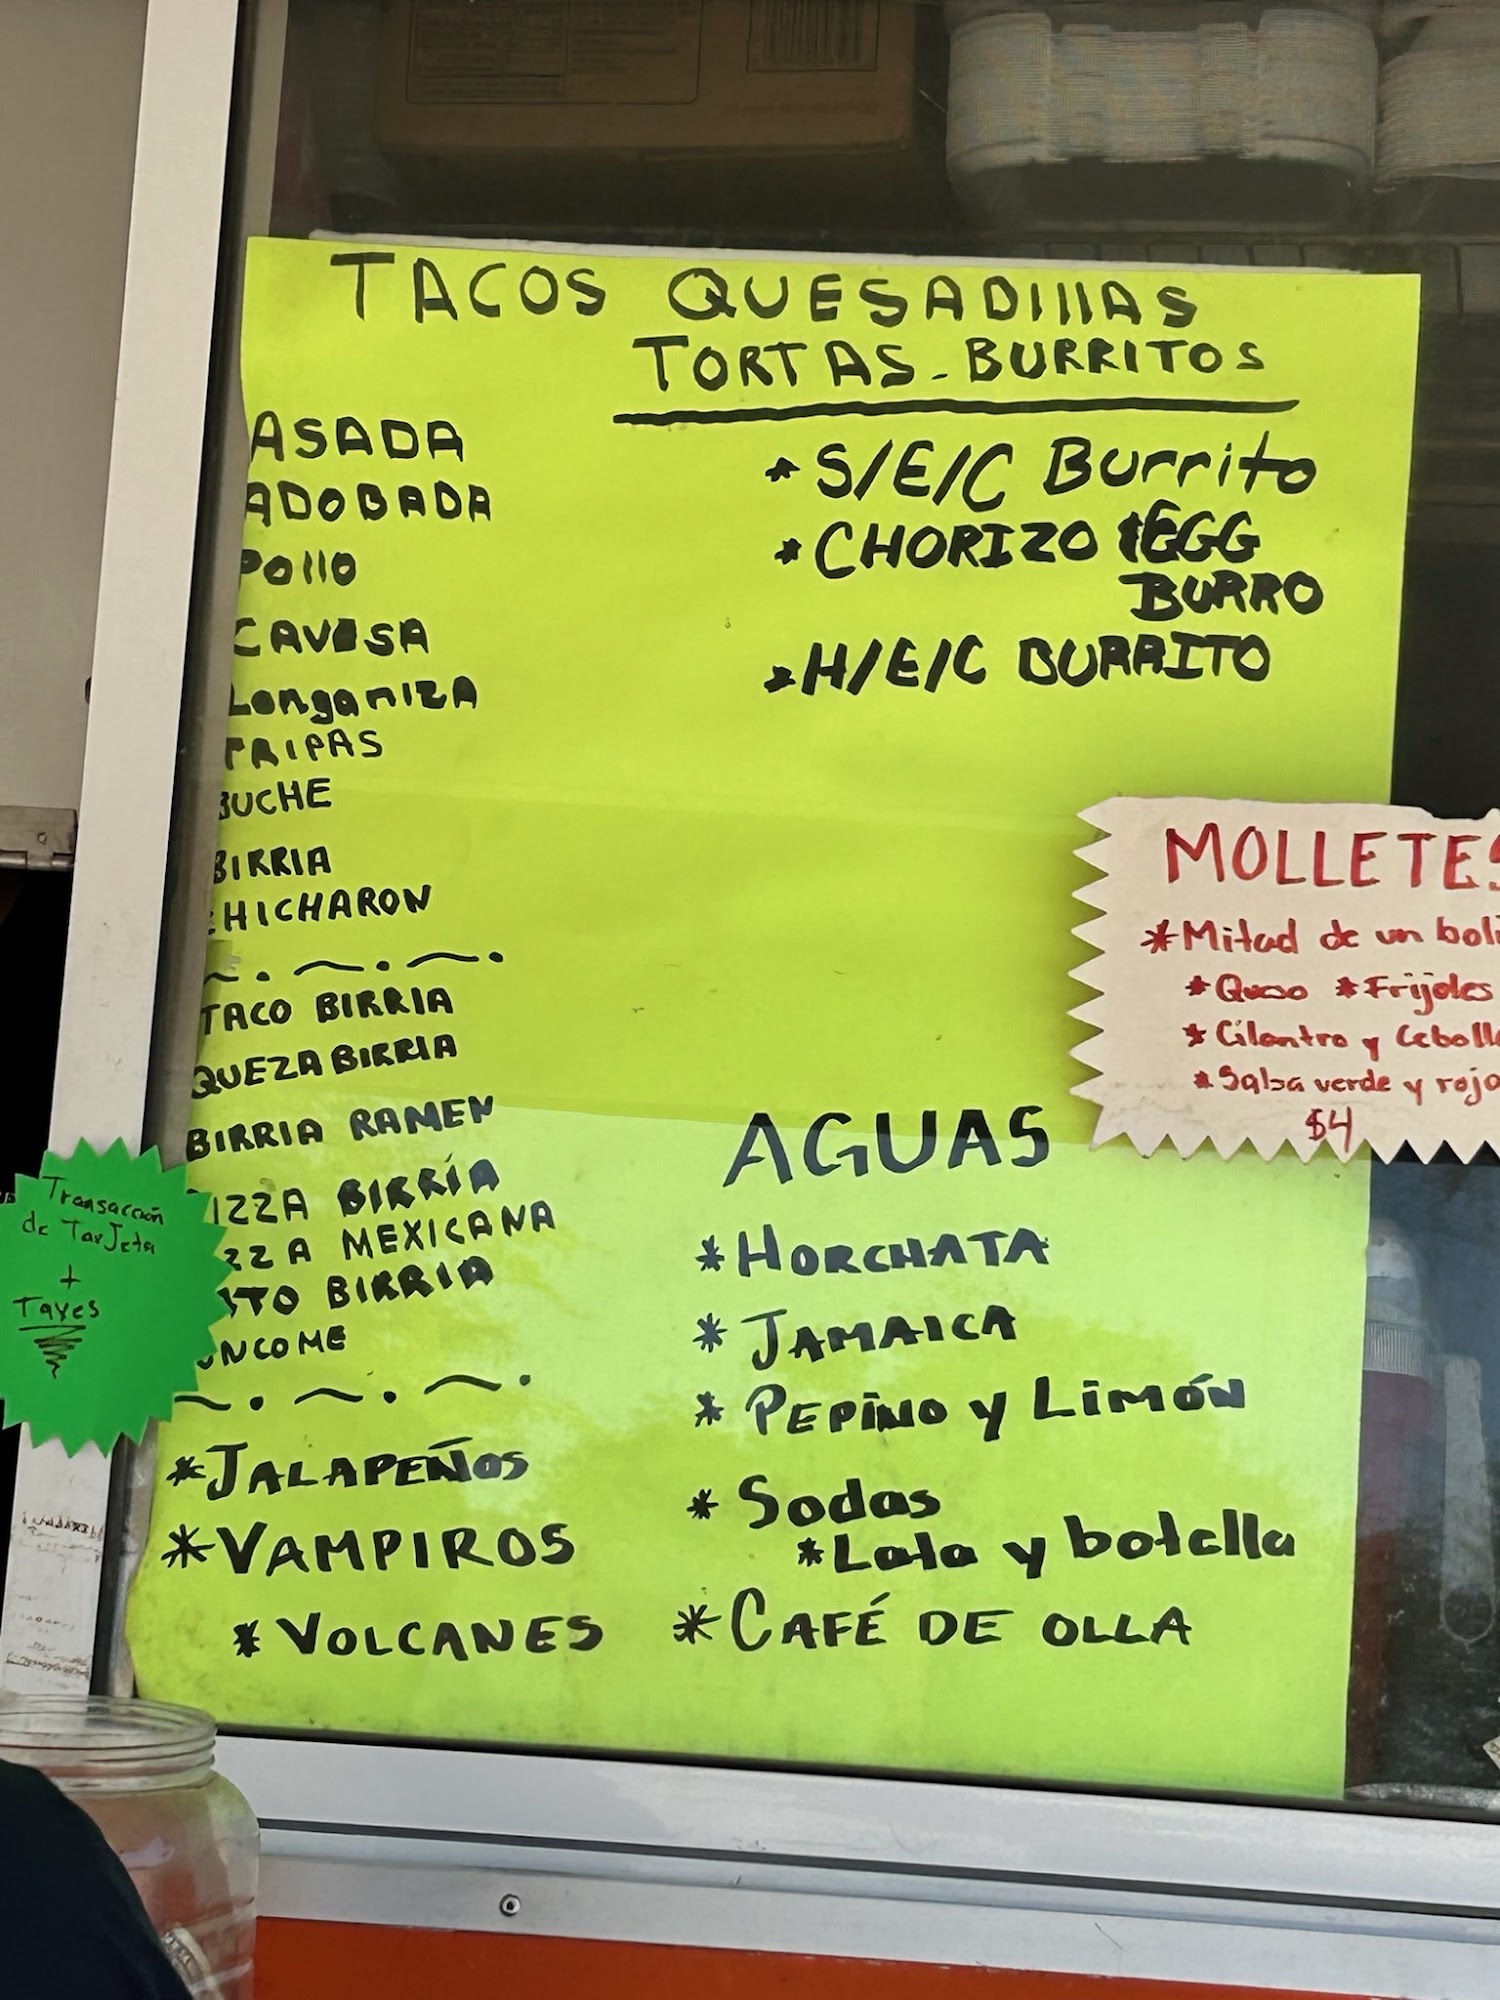 TACOS QUESADIllAS
TORTAS - BURRITOS
ASADA
ADOBADA
Pollo
CAVESA
LonganizA
TRIPAS
BUCHE
BIRRIA
CHICHARON
TACO BIRRIA
QUEZABIRRIA
BIRRIA RAMEN
PIZZA BIRRÍA
PIZZA MEXICANA
BIRRIA
* JALAPEÑOS
* VAMPIROS
* VOLCANES
* S/E/C Burrito
* CHORIZO & EGG
BURRO
* H/E/C BURRITO
AGUAS
* HORCHATA
* JAMAICA
* PEPINO y LIMÓN
* Sodas
* Lata y botella
* CAFÉ DE OLLA
MOLLETES
* Mitad de un boli
* Queso * Frijoles
* Cilantro y Cebolla
* Salsa verde y roja
$4
Transacción
de TarJeta
+
Taxes